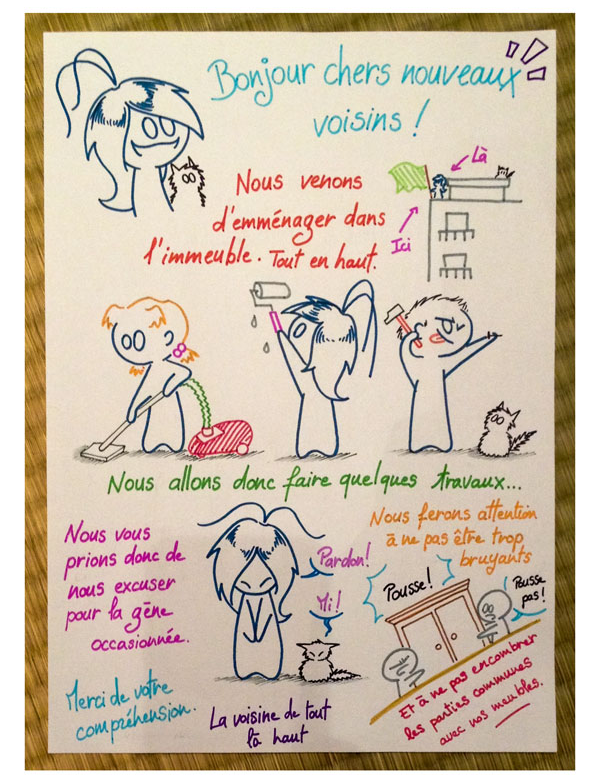 Bonjour chers nouveaux
voisins !
Nous venons
d'emménager dans
l'immeuble. Tout en haut.
Là
Ici
Nous allons donc faire quelques travaux...
Nous vous
prions donc de
nous excuser
pour la gêne
occasionnée.
Pardon!
Mi!
Nous ferons attention
à ne pas être trop
bruyants
Pousse!
Pousse
pas!
Et à ne pas encombrer
les parties communes
avec nos meubles.
Merci de votre
compréhension.
La voisine de tout
là haut